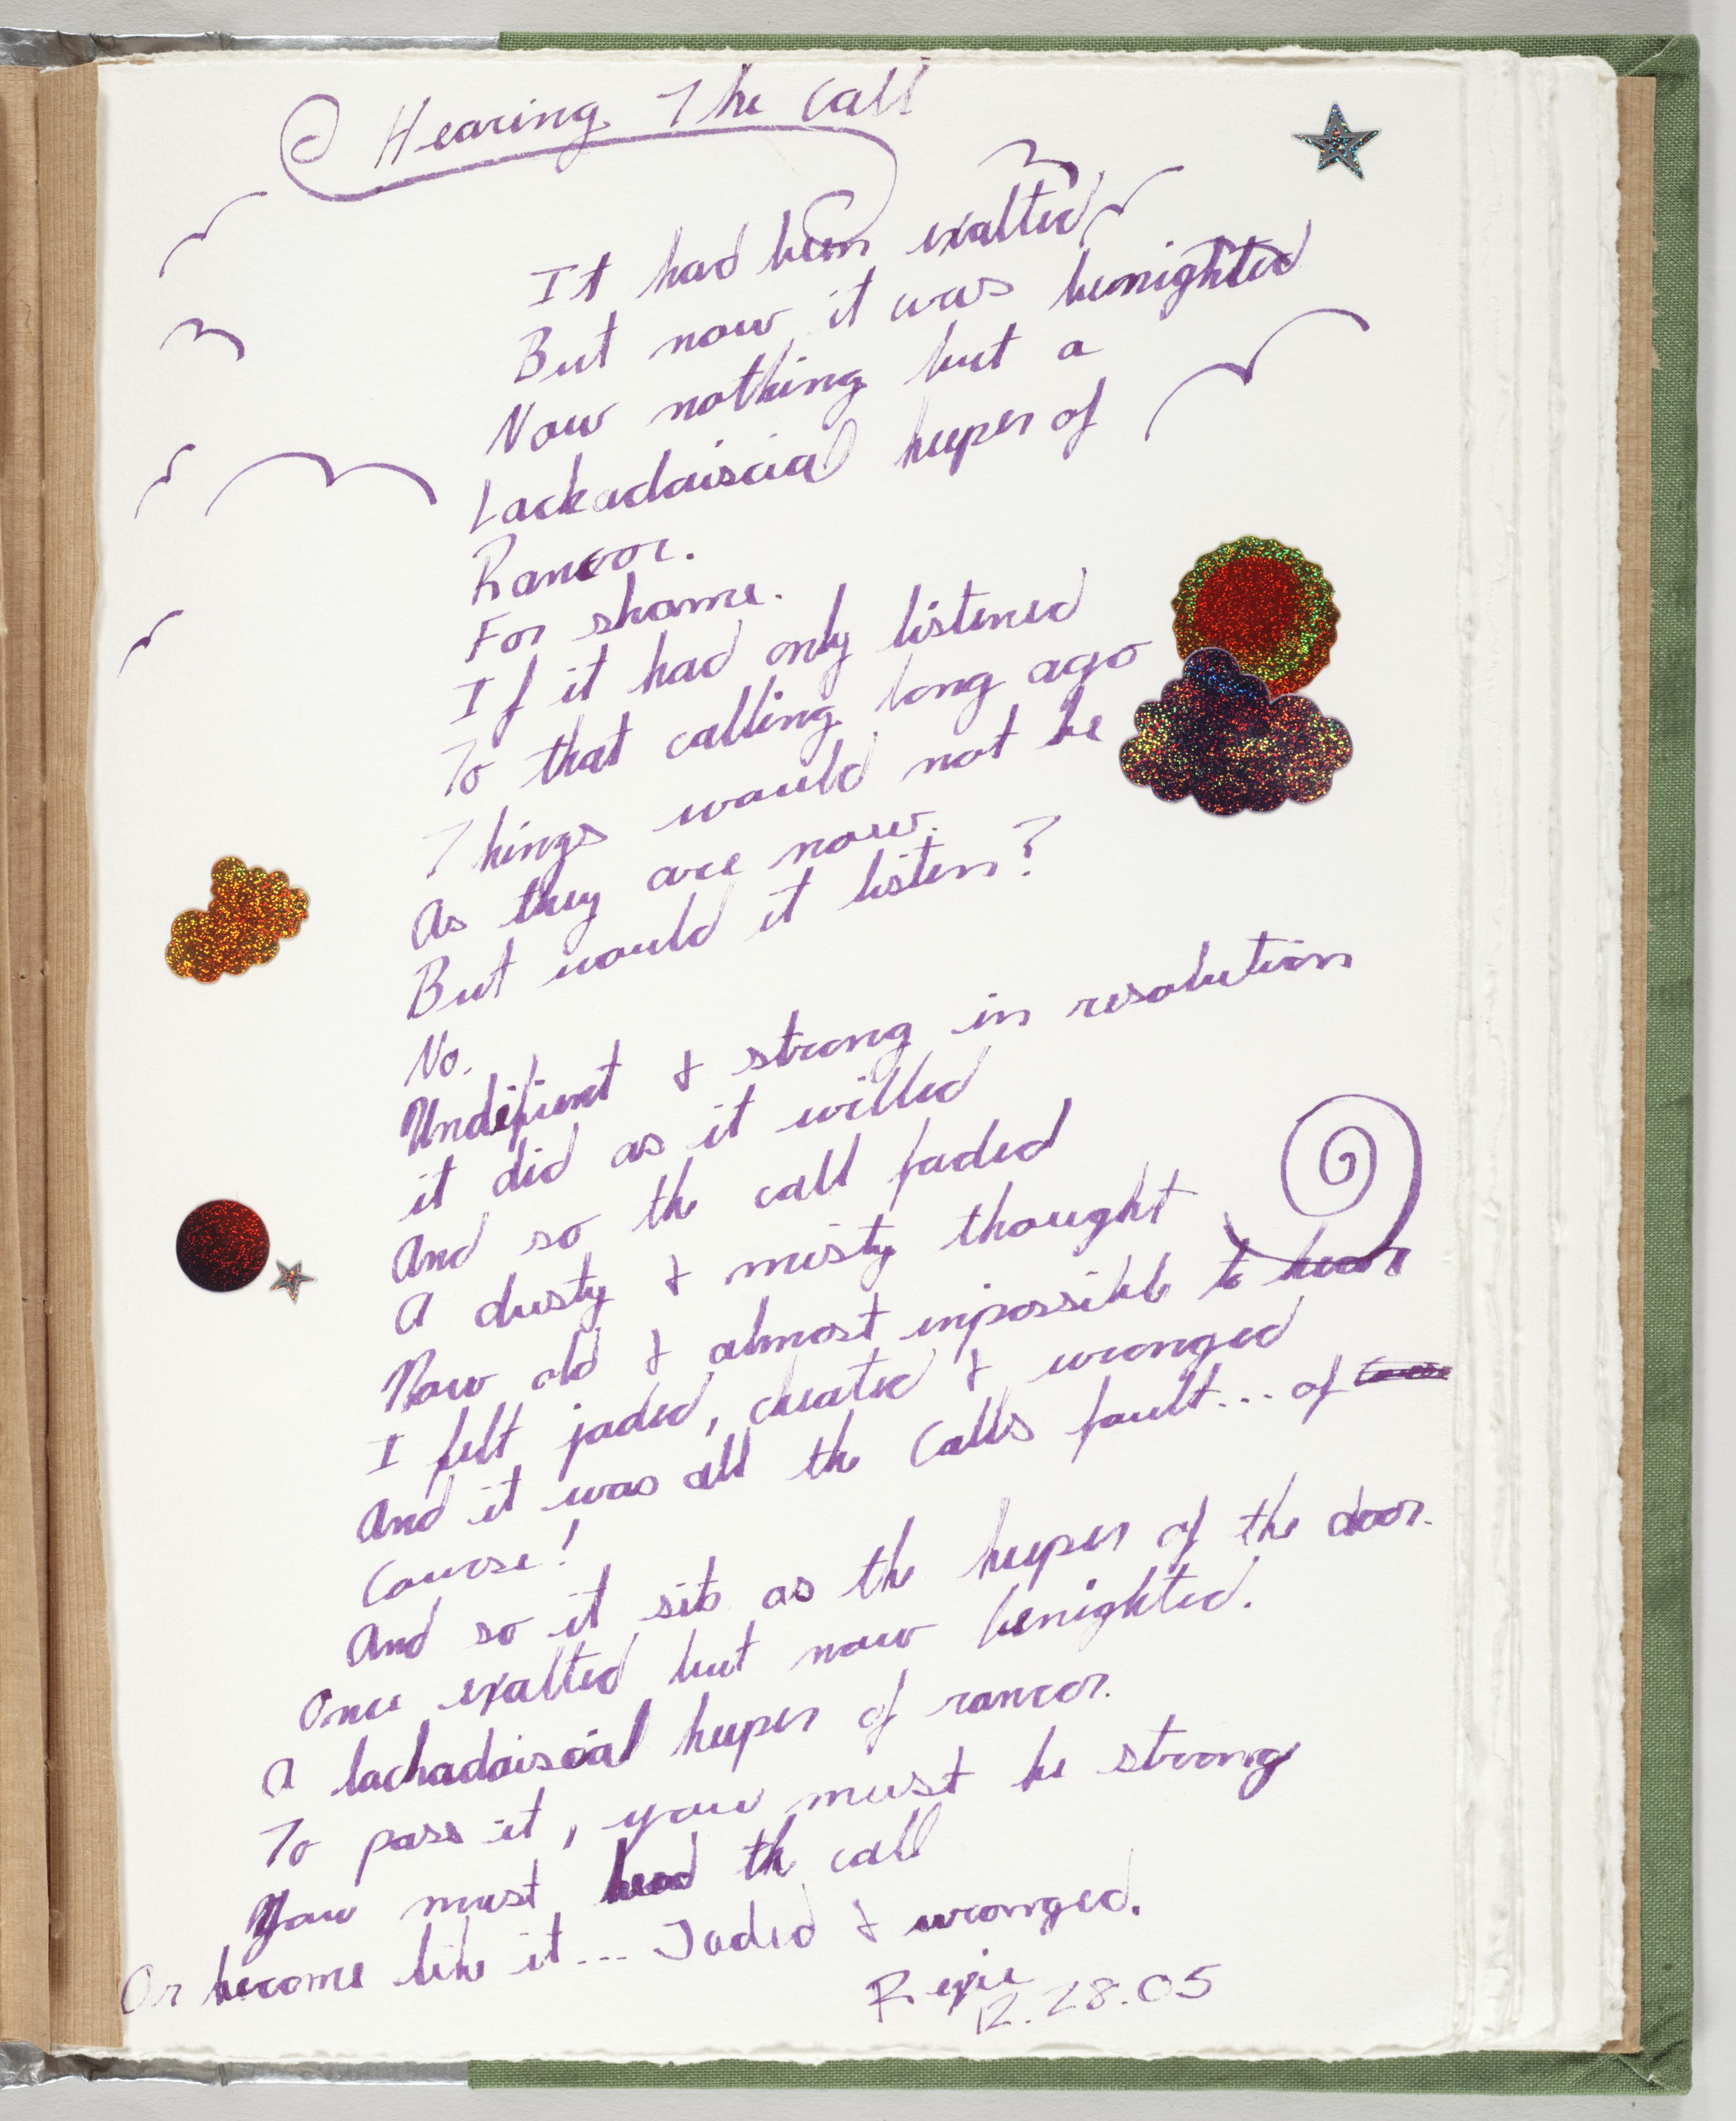 Hearing The Call
It had been exalted
But now it was benighted
Now nothing but a
Lackadaiscial keeper of
Rancor.
For shame.
If it had only listened
To that calling long ago
Things would not be
As they are now.
But would it listen?
No.
& strong in resolution
it did as it willed
And so the call faded
A dusty & misty thought
Now old & almost impossible to hear
I felt jaded, cheated & wronged
And it was all the Calls fault... of
Course!
And so it sits as the keeper of the door.
Once exalted but now benighted.
A lackadaiscial keeper of rancor.
To pass it, you must be strong
You must heed the call
Or become like it... Jaded & wronged.
12.28.05